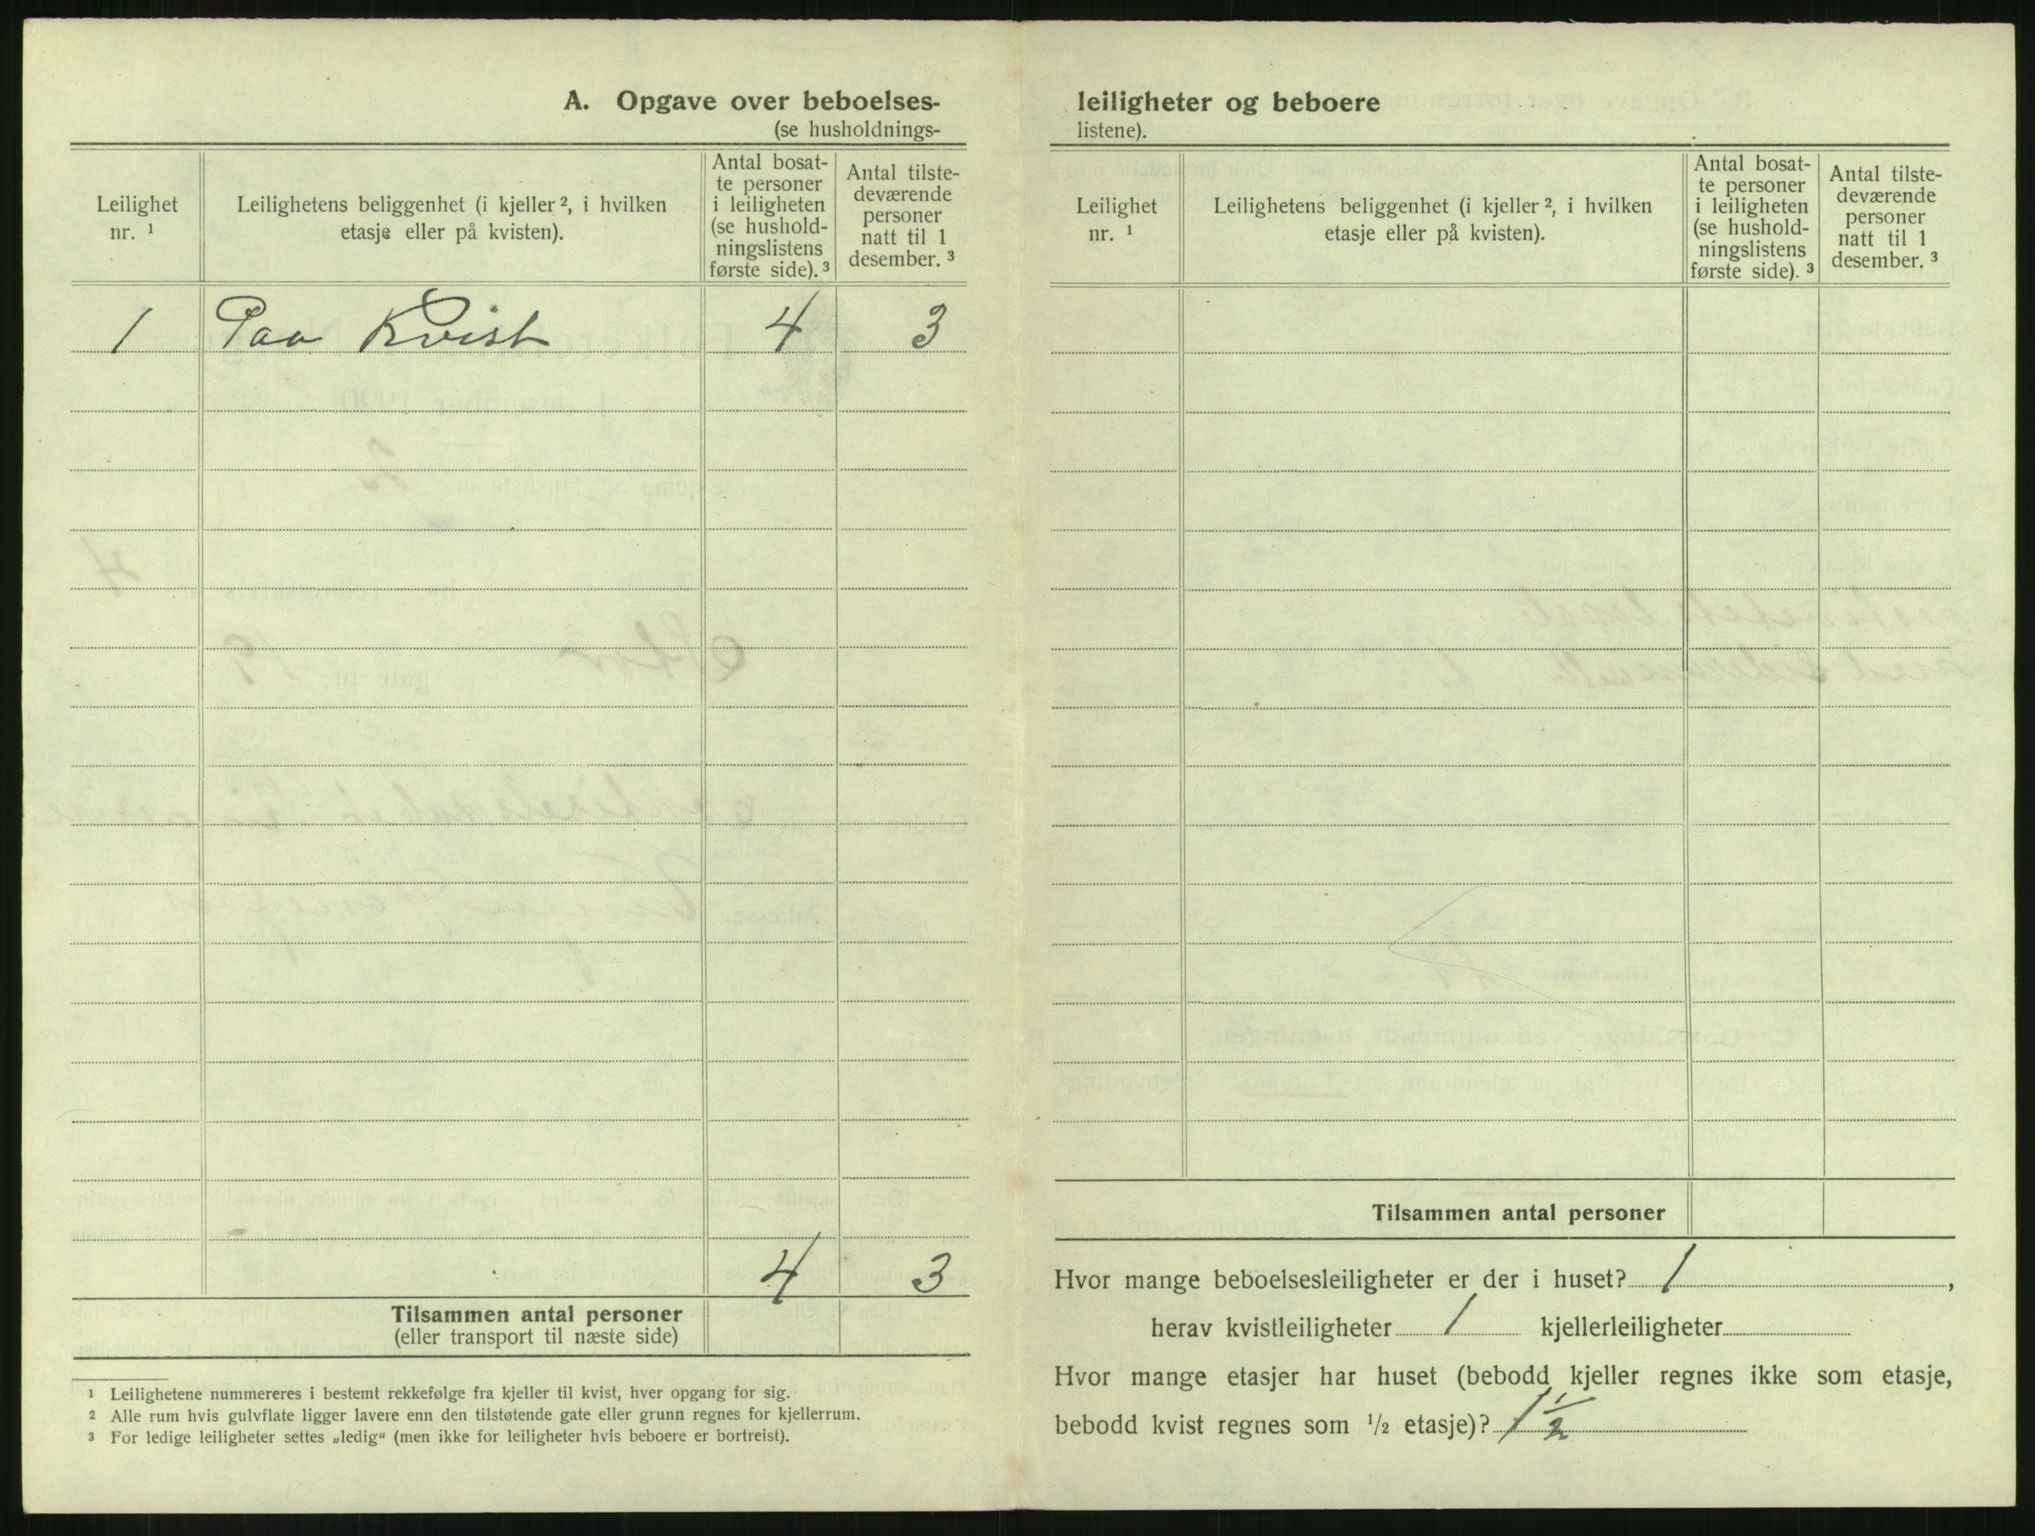 A. Opgave over beboelses-
(se husholdnings-
Leilighet nr. 1
Leilighetens beliggenhet (i kjeller 2, i hvilken
etasje eller på kvisten).
Antal bosat-
te personer
i leiligheten
(se hushold-
ningslistens
første side). 3
Antal tilste-
deværende
personer
natt til 1
desember. 3
1 Paa Kvist 4 3
4 3
Tilsammen antal personer
(eller transport til næste side)
1 Leilighetene nummereres i bestemt rekkefølge fra kjeller til kvist, hver opgang for sig.
2 Alle rum hvis gulvflate ligger lavere enn den tilstøtende gate eller grunn regnes for kjellerrum.
3 For ledige leiligheter settes „ledig“ (men ikke for leiligheter hvis beboere er bortreist).
leiligheter og beboere
listene).
Leilighet
nr. 1
Leilighetens beliggenhet (i kjeller 2, i hvilken
etasje eller på kvisten).
Antal bosat-
te personer
i leiligheten
(se hushold-
ningslistens
første side). 3
Antal tilste-
deværende
personer
natt til 1
desember. 3
Tilsammen antal personer
Hvor mange beboelsesleiligheter er der i huset? 1,
herav kvistleiligheter 1 kjellerleiligheter
Hvor mange etasjer har huset (bebodd kjeller regnes ikke som etasje,
bebodd kvist regnes som 1/2 etasje)? 1 1/2